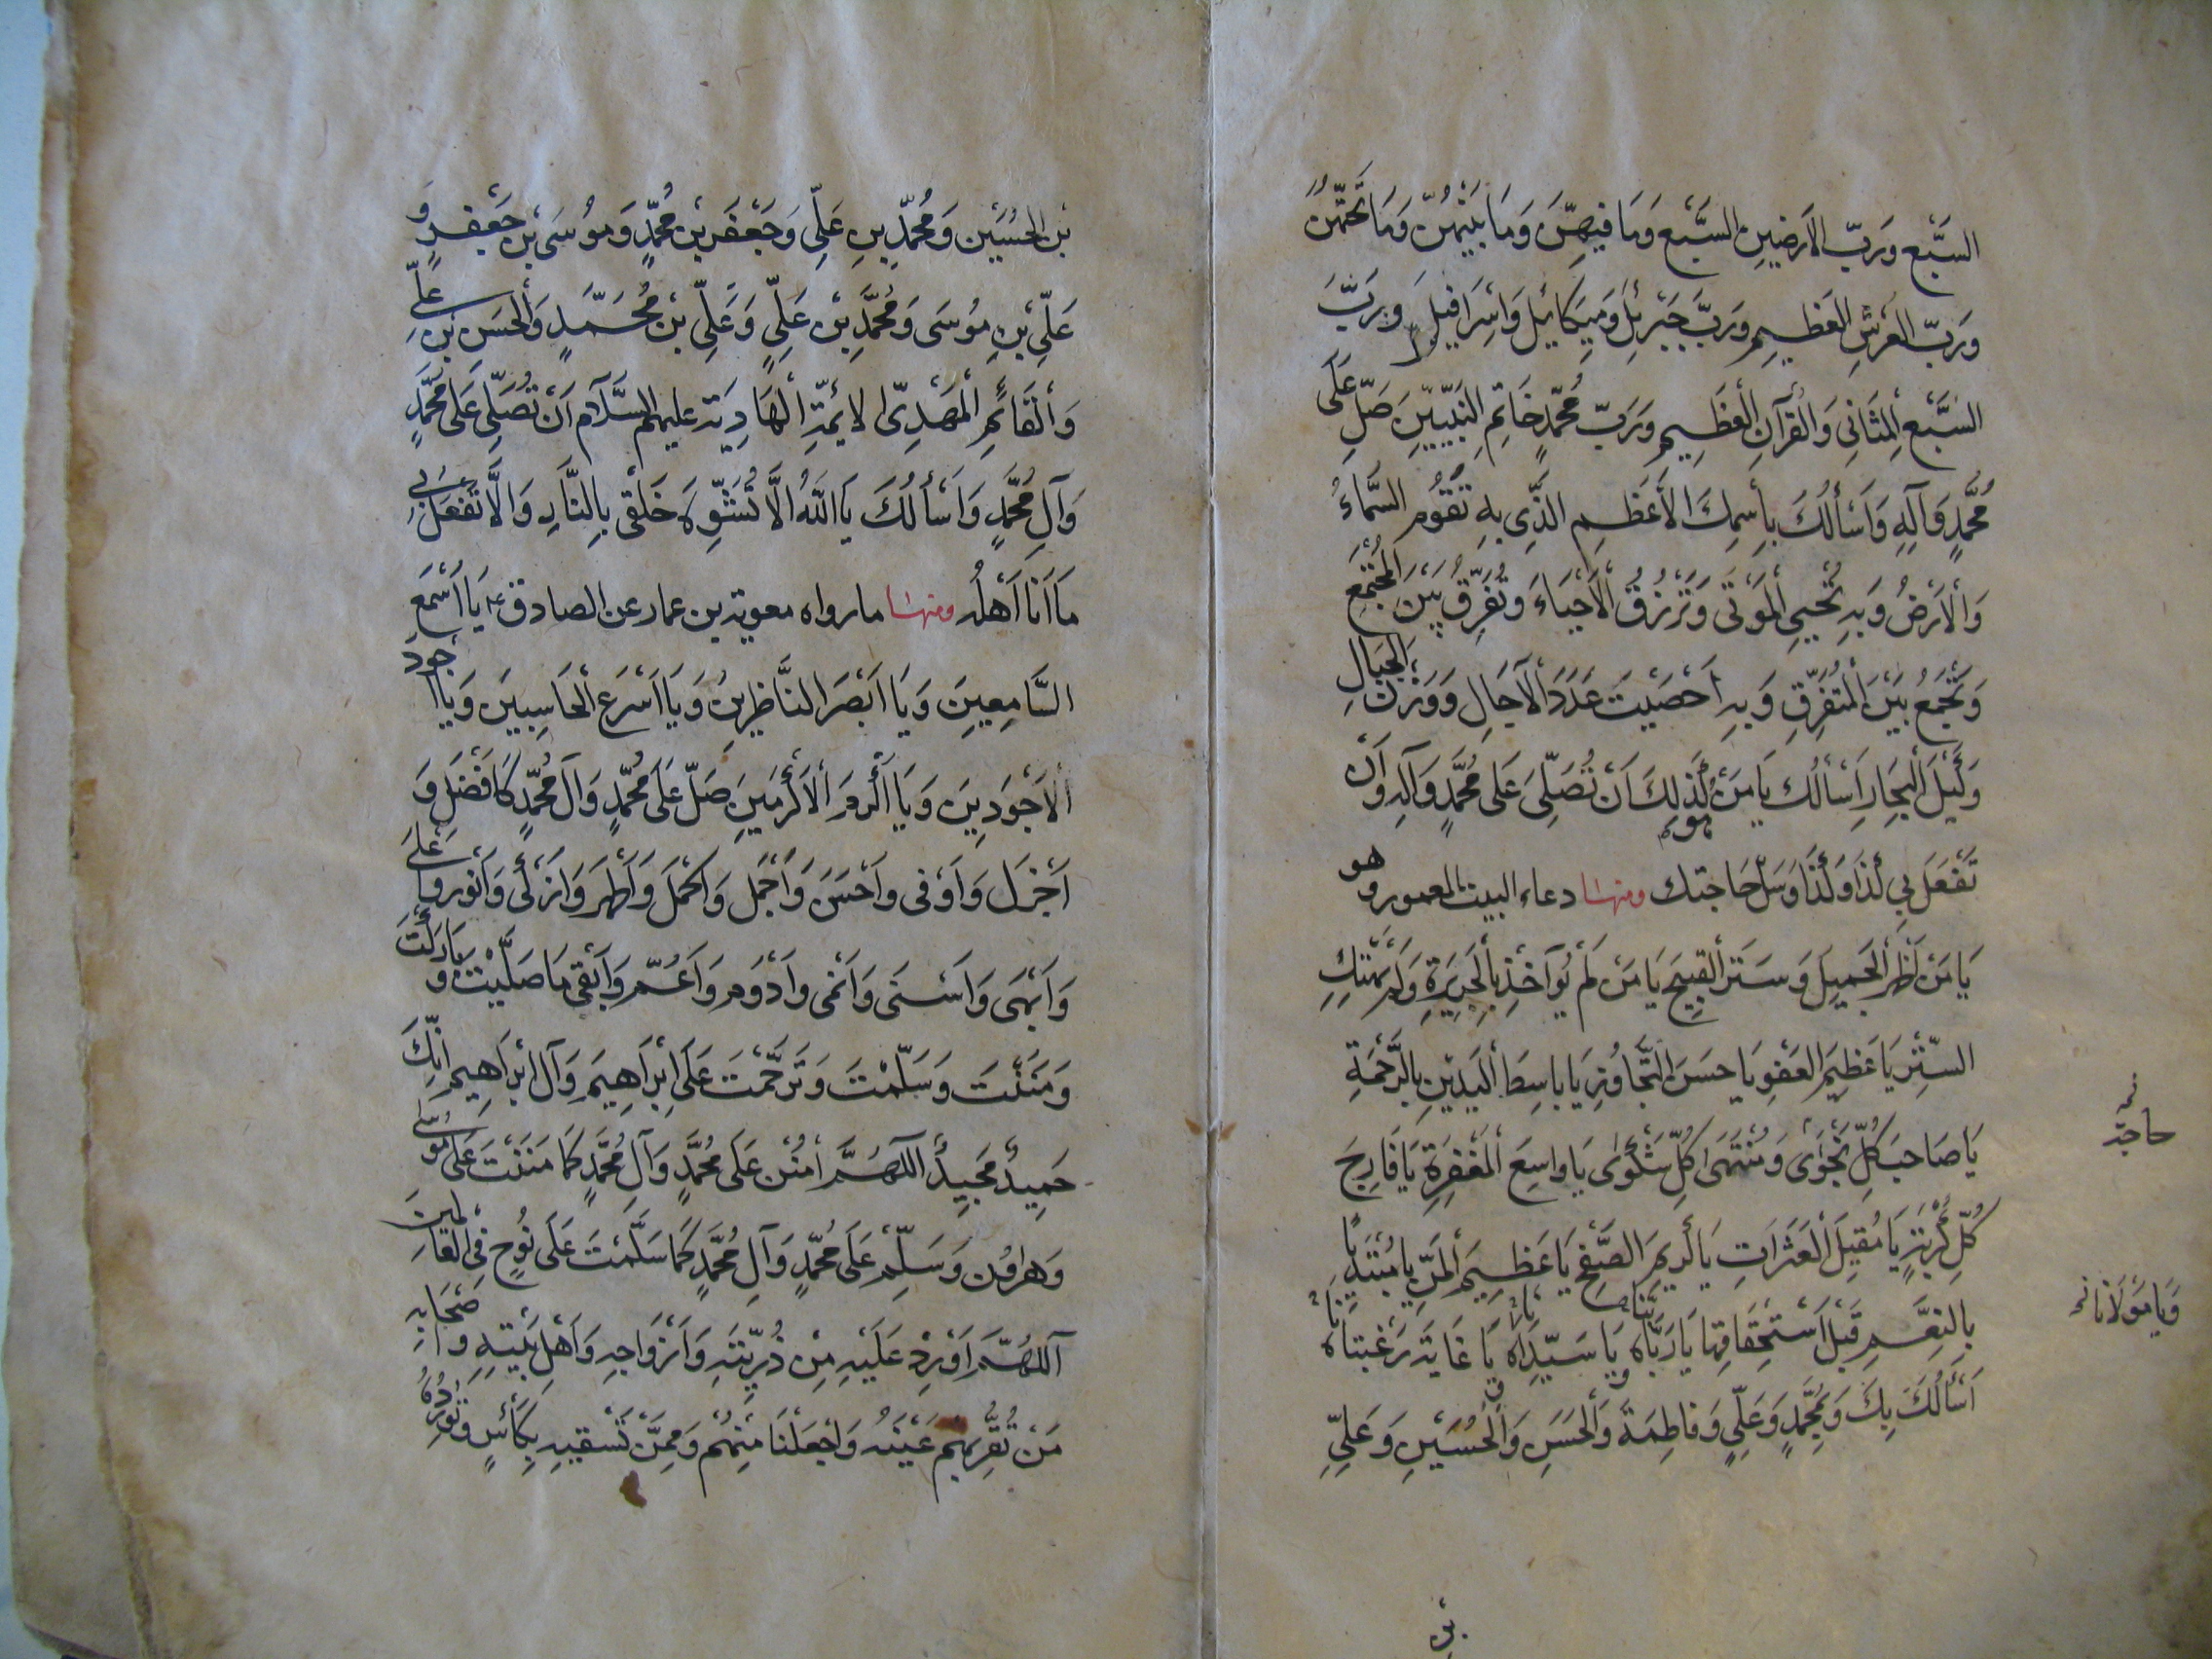 السَّبْعِ وَرَبَّ الْاَرَضِينَ السَّبْعِ وَمَا فِيهِنَّ وَمَا بَيْنَهُنَّ وَمَا تَحْتَهُنَّ
وَرَبَّ الْعَرْشِ الْعَظِيمِ وَرَبَّ جَبْرَئِلَ وَمِيكَائِيلَ وَاِسْرَافِيلَ وَرَبَّ
السَّبْعِ الْمَثَانِي وَالْقُرْآنِ الْعَظِيمِ وَرَبَّ مُحَمَّدٍ خَاتِمِ النَّبِيِّينَ صَلِّ عَلَى
مُحَمَّدٍ وَآلِهِ وَاَسْأَلُكَ بِاسْمِكَ الْاَعْظَمِ الَّذِي بِهِ تَقُومُ السَّمَاءُ
وَالْاَرْضُ وَبِهِ تُحْيِي الْمَوْتَى وَتَرْزُقُ الْاَحْيَاءَ وَتُفَرِّقُ بَيْنَ الْمُجْتَمِعِ
وَتَجْمَعُ بَيْنَ الْمُتَفَرِّقِ وَبِهِ اَحْصَيْتَ عَدَدَ الْآجَالِ وَوَزْنَ الْجِبَالِ
وَكَيْلَ الْبِحَارِ اَسْأَلُكَ يَا مَنْ هُوَ كَذَلِكَ اَنْ تُصَلِّيَ عَلَى مُحَمَّدٍ وَآلِهِ وَاَنْ
تَفْعَلَ بِي كَذَا وَكَذَا وَسَلْ حَاجَتَكَ ومنها دعاء البيت المعمور وهو
يَا مَنْ اَظْهَرَ الْجَمِيلَ وَسَتَرَ الْقَبِيحَ يَا مَنْ لَمْ يُوَاخِذْ بِالْجَرِيرَةِ وَلَمْ يَهْتِكِ
السِّتْرَ يَا عَظِيمَ الْعَفْوِ يَا حَسَنَ التَّجَاوُزِ يَا بَاسِطَ الْيَدَيْنِ بِالرَّحْمَةِ
يَا صَاحِبَ كُلِّ نَجْوَى وَمُنْتَهَى كُلِّ شَكْوَى يَا وَاسِعَ الْمَغْفِرَةِ يَا فَارِجَ
كُلِّ كُرْبَةٍ يَا مُقِيلَ الْعَثَرَاتِ يَا كَرِيمَ الصَّفْحِ يَا عَظِيمَ الْمَنِّ يَا مُبْتَدِيًا
بِالنِّعَمِ قَبْلَ اسْتِحْقَاقِهَا يَا رَبَّاه وَيَا سَيِّدَاه يَا غَايَةَ رَغْبَتَاه
اَسْأَلُكَ بِكَ وَبِمُحَمَّدٍ وَعَلِيٍّ وَفَاطِمَةَ وَالْحَسَنِ وَالْحُسَيْنِ وَعَلِيِّ
حاجته
وَيَا مَوْلَانَا
بْنِ
بْنِ الْحُسَيْنِ وَمُحَمَّدِ بْنِ عَلِيٍّ وَجَعْفَرِ بْنِ مُحَمَّدٍ وَمُوسَى بْنِ جَعْفَرٍ وَ
عَلِيِّ بْنِ مُوسَى وَمُحَمَّدِ بْنِ عَلِيٍّ وَعَلِيِّ بْنِ مُحَمَّدٍ وَالْحَسَنِ بْنِ عَلِيٍّ
وَالْقَائِمِ الْمَهْدِيِّ الْاَئِمَّةِ الْهَادِيَةِ عليهم السَّلَام اَنْ تُصَلِّيَ عَلَى مُحَمَّدٍ
وَآلِ مُحَمَّدٍ وَاَسْأَلُكَ يَا اَللّٰهُ اَلَّا تُشَوِّهَ خَلْقِي بِالنَّارِ وَاَلَّا تَفْعَلَ بِي
مَا اَنَا اَهْلُه ومنها ما رواه معوية بن عمار عن الصادق ع يَا اَسْمَعَ
السَّامِعِينَ وَيَا اَبْصَرَ النَّاظِرِينَ وَيَا اَسْرَعَ الْحَاسِبِينَ وَيَا اَجْوَدَ
الْاَجْوَدِينَ وَيَا اَكْرَمَ الْاَكْرَمِينَ صَلِّ عَلَى مُحَمَّدٍ وَآلِ مُحَمَّدٍ كَاَفْضَلِ وَ
اَجْزَلِ وَاَوْفَى وَاَحْسَنِ وَاَجْمَلِ وَاَكْمَلِ وَاَطْهَرِ وَاَزْكَى وَاَنْوَرِ وَاَعْلَى
وَاَبْهَى وَاَسْنَى وَاَنْمَى وَاَدْوَمِ وَاَعَمِّ وَاَبْقَى مَا صَلَّيْتَ وَبَارَكْتَ
وَمَنَنْتَ وَسَلَّمْتَ وَتَرَحَّمْتَ عَلَى اِبْرَاهِيمَ وَآلِ اِبْرَاهِيمَ اِنَّكَ
حَمِيدٌ مَجِيدٌ اَللّٰهُمَّ امْنُنْ عَلَى مُحَمَّدٍ وَآلِ مُحَمَّدٍ كَمَا مَنَنْتَ عَلَى مُوسَى
وَهَارُونَ وَسَلِّمْ عَلَى مُحَمَّدٍ وَآلِ مُحَمَّدٍ كَمَا سَلَّمْتَ عَلَى نُوحٍ فِي الْعَالَمِينَ
اَللّٰهُمَّ اَوْرِدْ عَلَيْهِ مِنْ ذُرِّيَّتِهِ وَاَزْوَاجِهِ وَاَهْلِ بَيْتِهِ وَاَصْحَابِهِ
مَنْ تُقِرُّ بِهِمْ عَيْنَهُ وَاجْعَلْنَا مِنْهُمْ وَمِمَّنْ تَسْقِيهِ بِكَأْسِهِ وَتُورِدُهُ